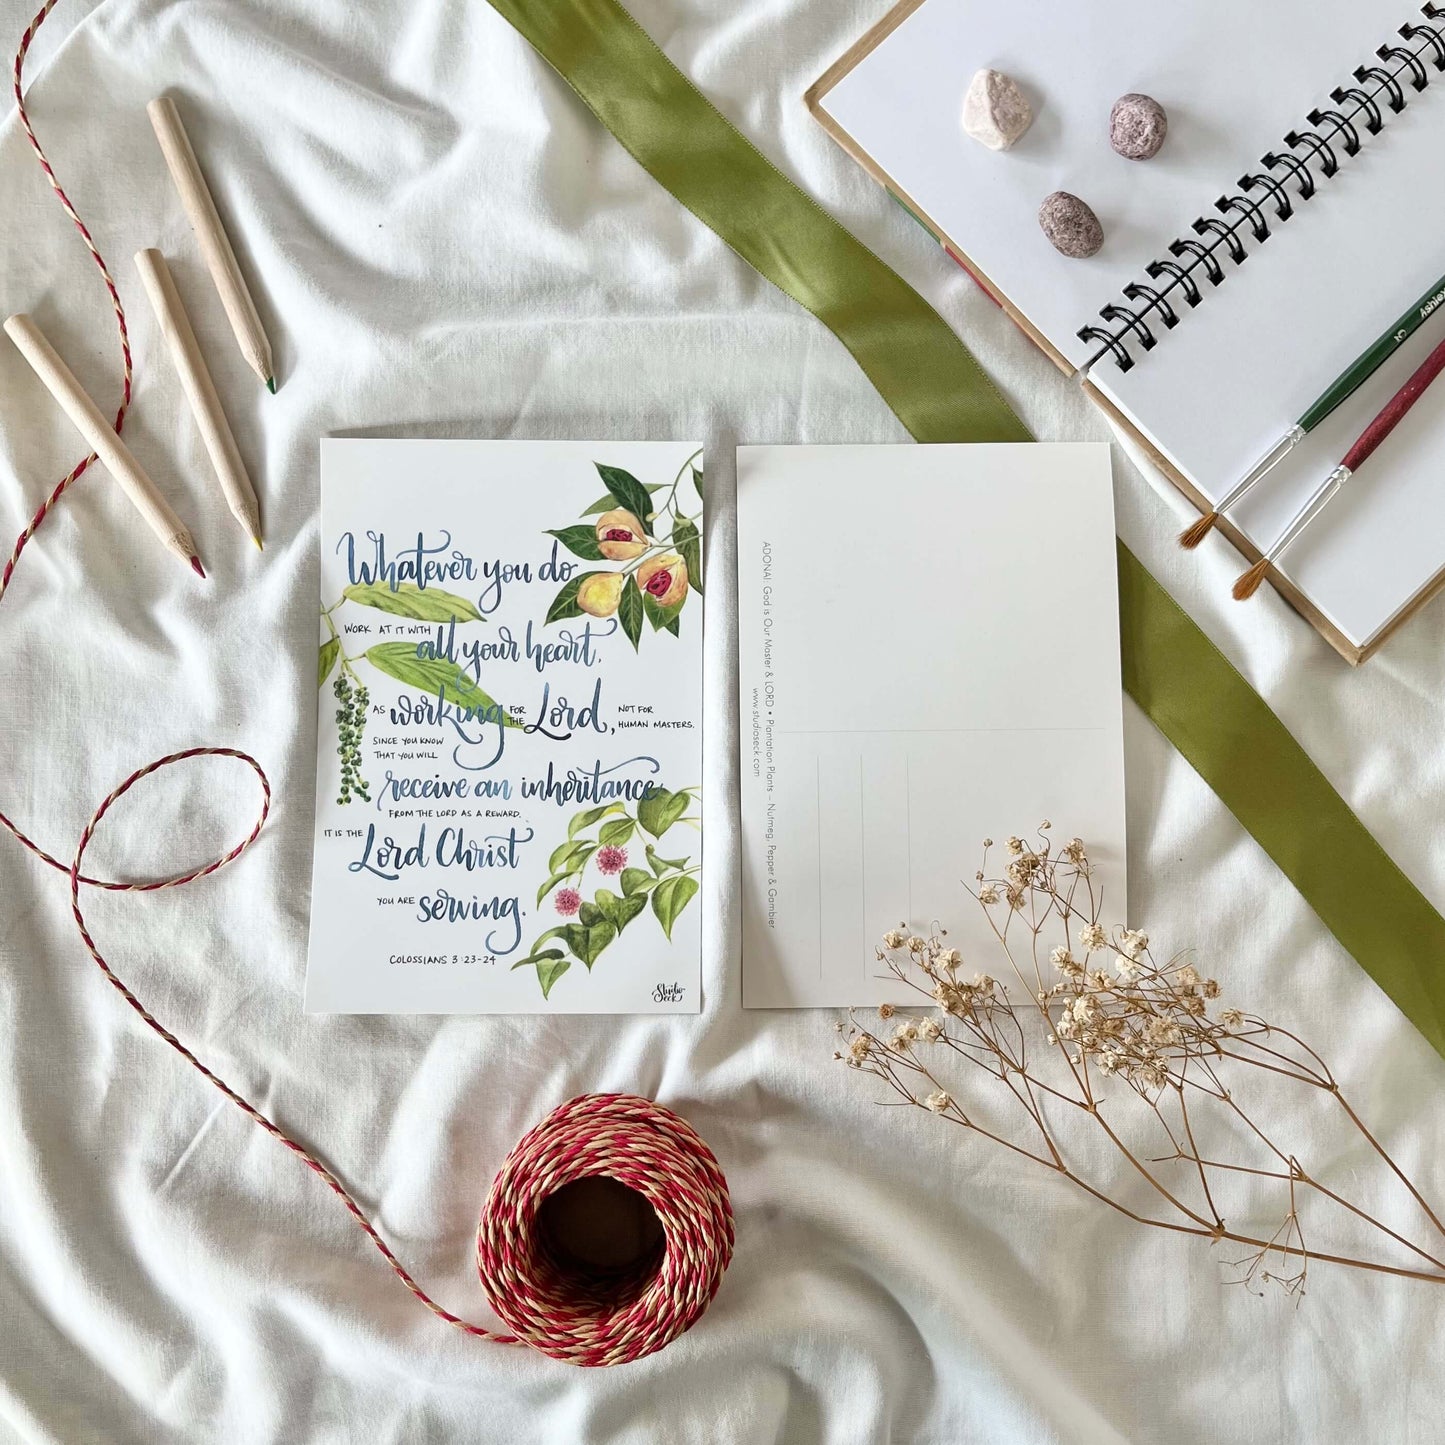 Whatever you do
WORK AT IT WITH all your heart,
AS working FOR THE Lord, NOT FOR HUMAN MASTERS.
SINCE YOU KNOW
THAT YOU WILL
receive an inheritance
FROM THE LORD AS A REWARD.
IT IS THE Lord Christ
YOU ARE serving.
COLOSSIANS 3:23-24
Studio Seck
ADONAI: God is Our Master & LORD • Plantation Plants – Nutmeg, Pepper & Gambier
www.studioseck.com
5 Ashley